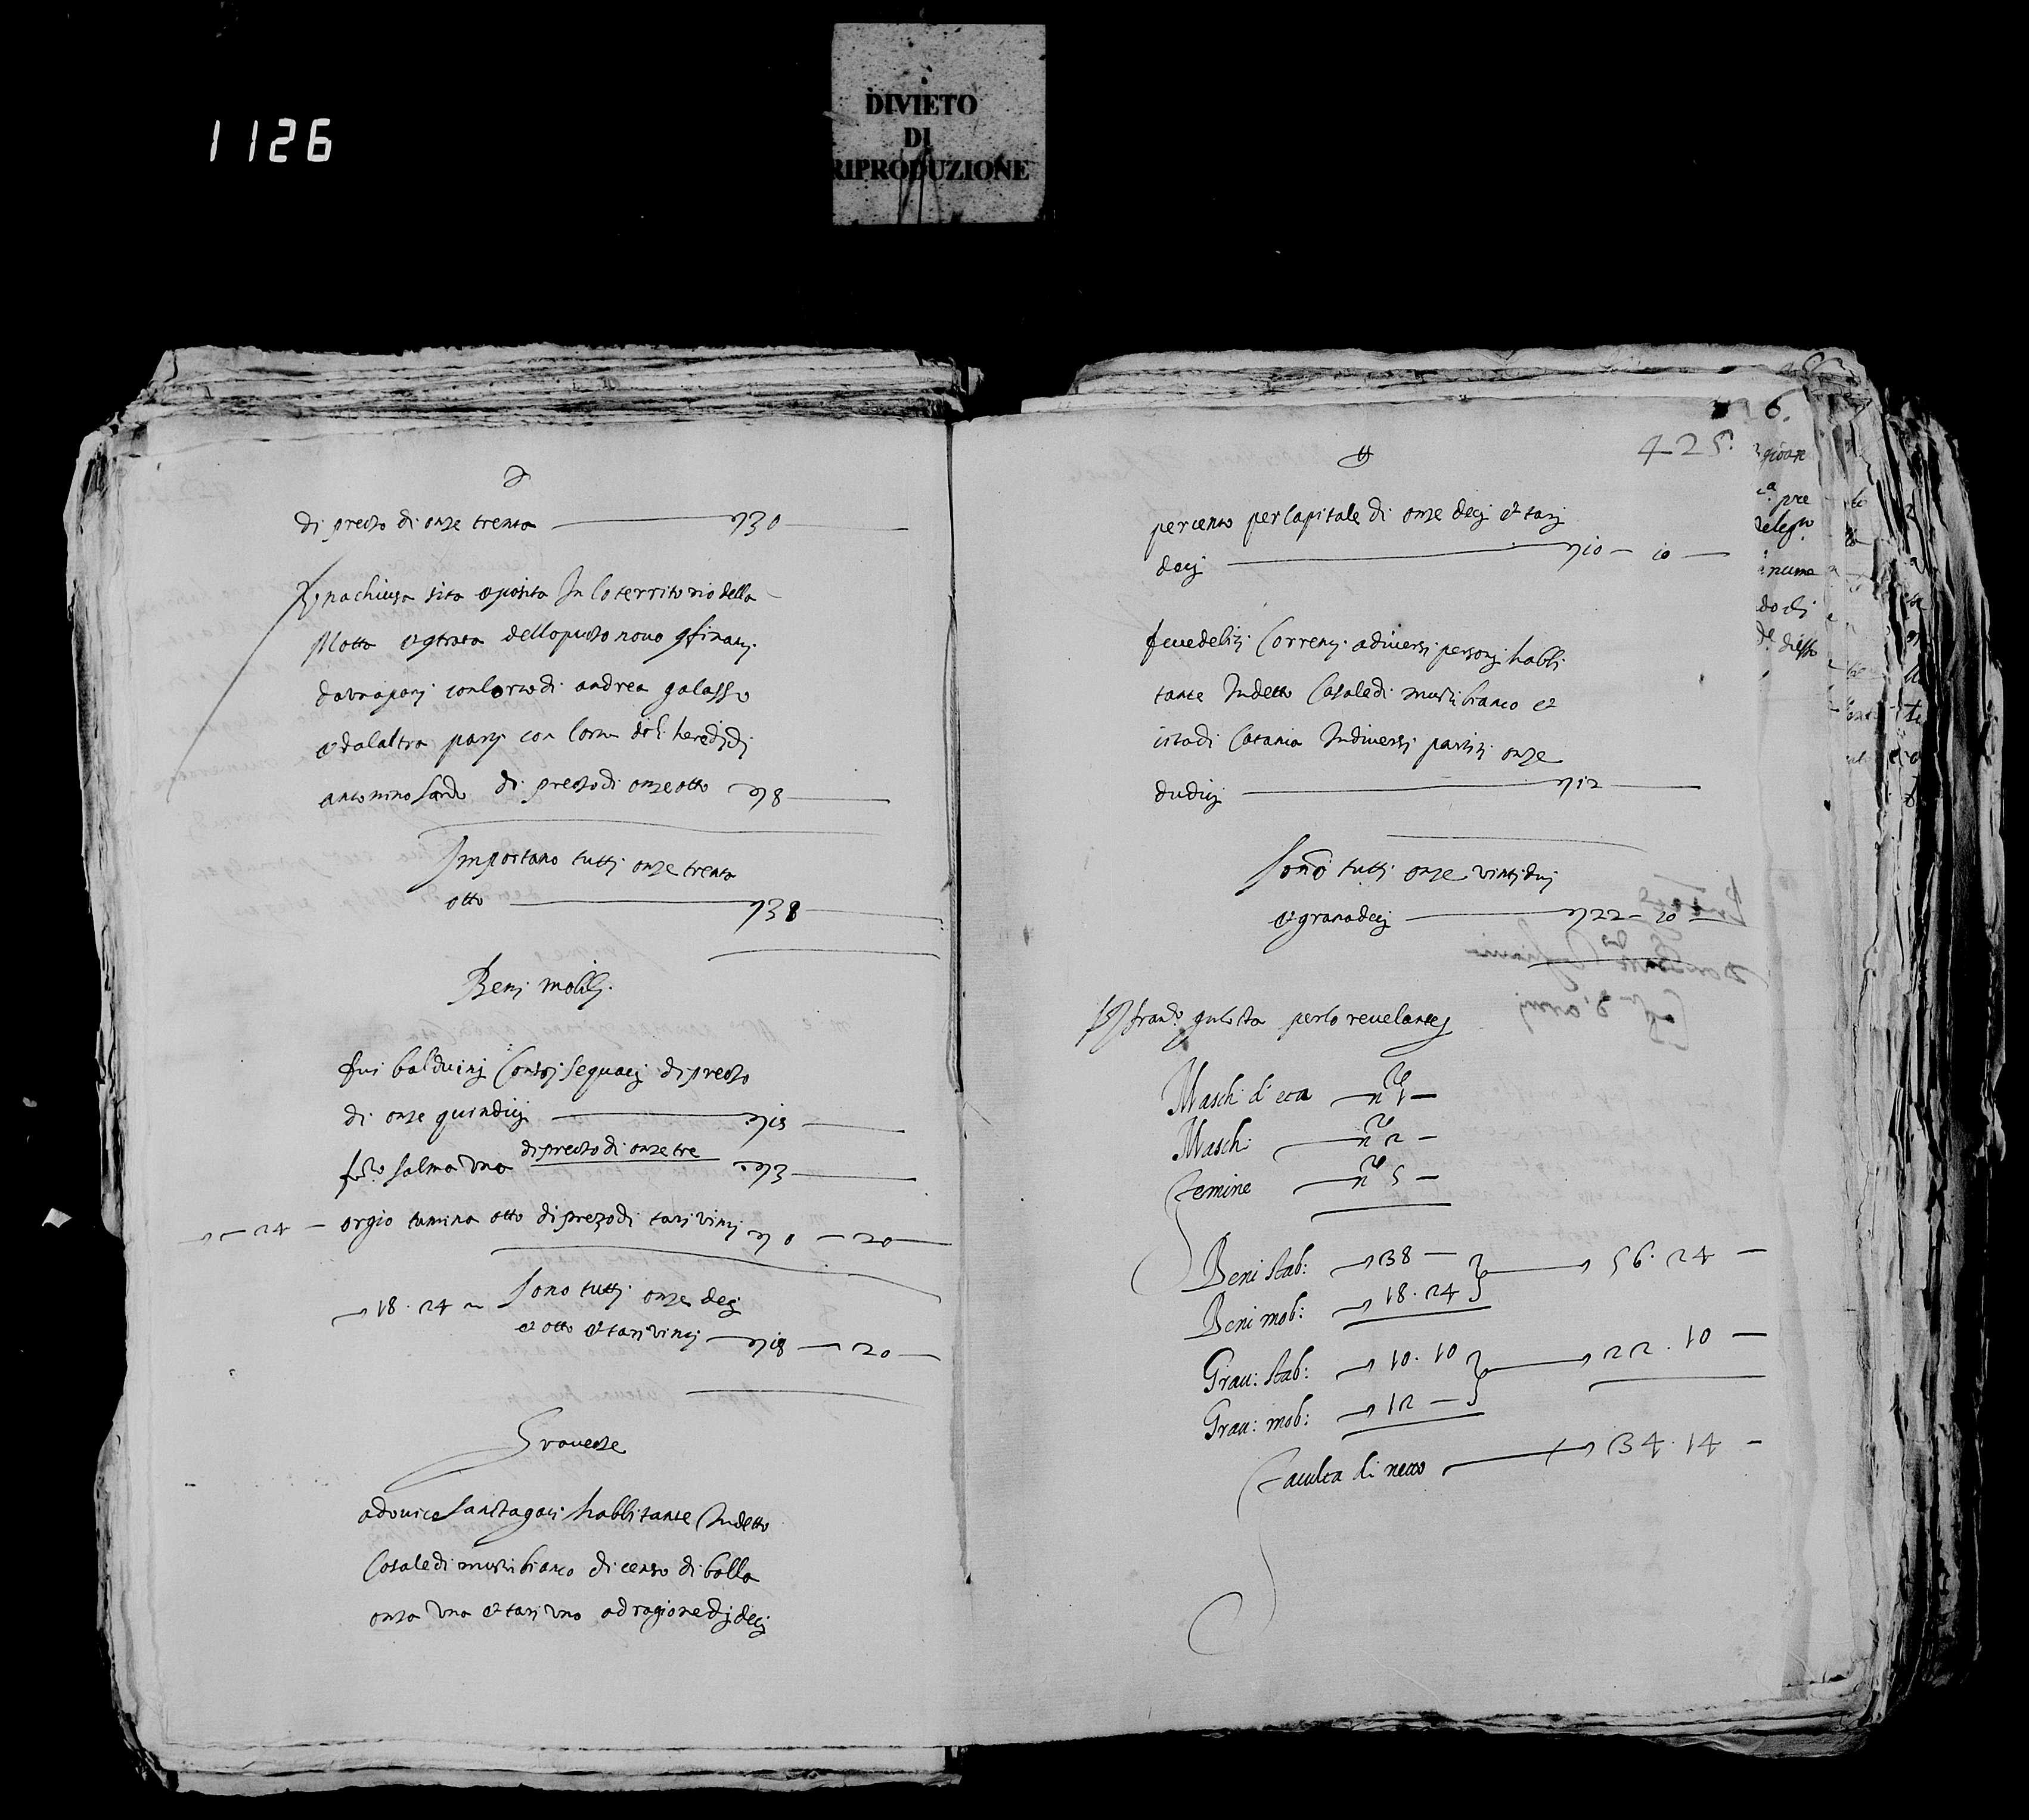 1126
DIVIETO
DI
RIPRODUZIONE
di prezo di onze trenta 30
Una chiusa sita e posita In lo territorio della
Motta contrata dello puzo novo confinanti
da una parti con loco di andrea galasso
e dalaltra parti con loca di li heredi di
antonino sardo di prezo di onze otto 8
Importano tutti onze trenta
otto 38
Beni mobili
dui balduini di prezo
di onze quindici 15
salma una di prezo di onze tre 3
24 orgio tumina otto di prezo di tari vinti 0 20
18. 24 Sono tutti onze deci
et otto et tari vinti 18 20
Graveze
habbitante In detto
Casale di mustribianco di censo di bolla
onza una et tari uno ad ragione di deci
6.
425.
per cento per Capitale di onze deci et tari
deci 10 10
Correnti a diversi personi habbi
tante In detto Casale di mustribianco et
cita di Catania In diversi partiti onze
dudici 12
Sono tutti onze vinti dui
et grana deci 22 10
gulotta per lo revelante
Masch. d'eta n.º 1
Masch. n.º 2
Femine n.º 5
Beni stab: 38 56. 24
Beni mob: 18. 24
Grau: stab: 10. 10 22. 10
Grau: mob: 12
Faculta di netto 34. 14